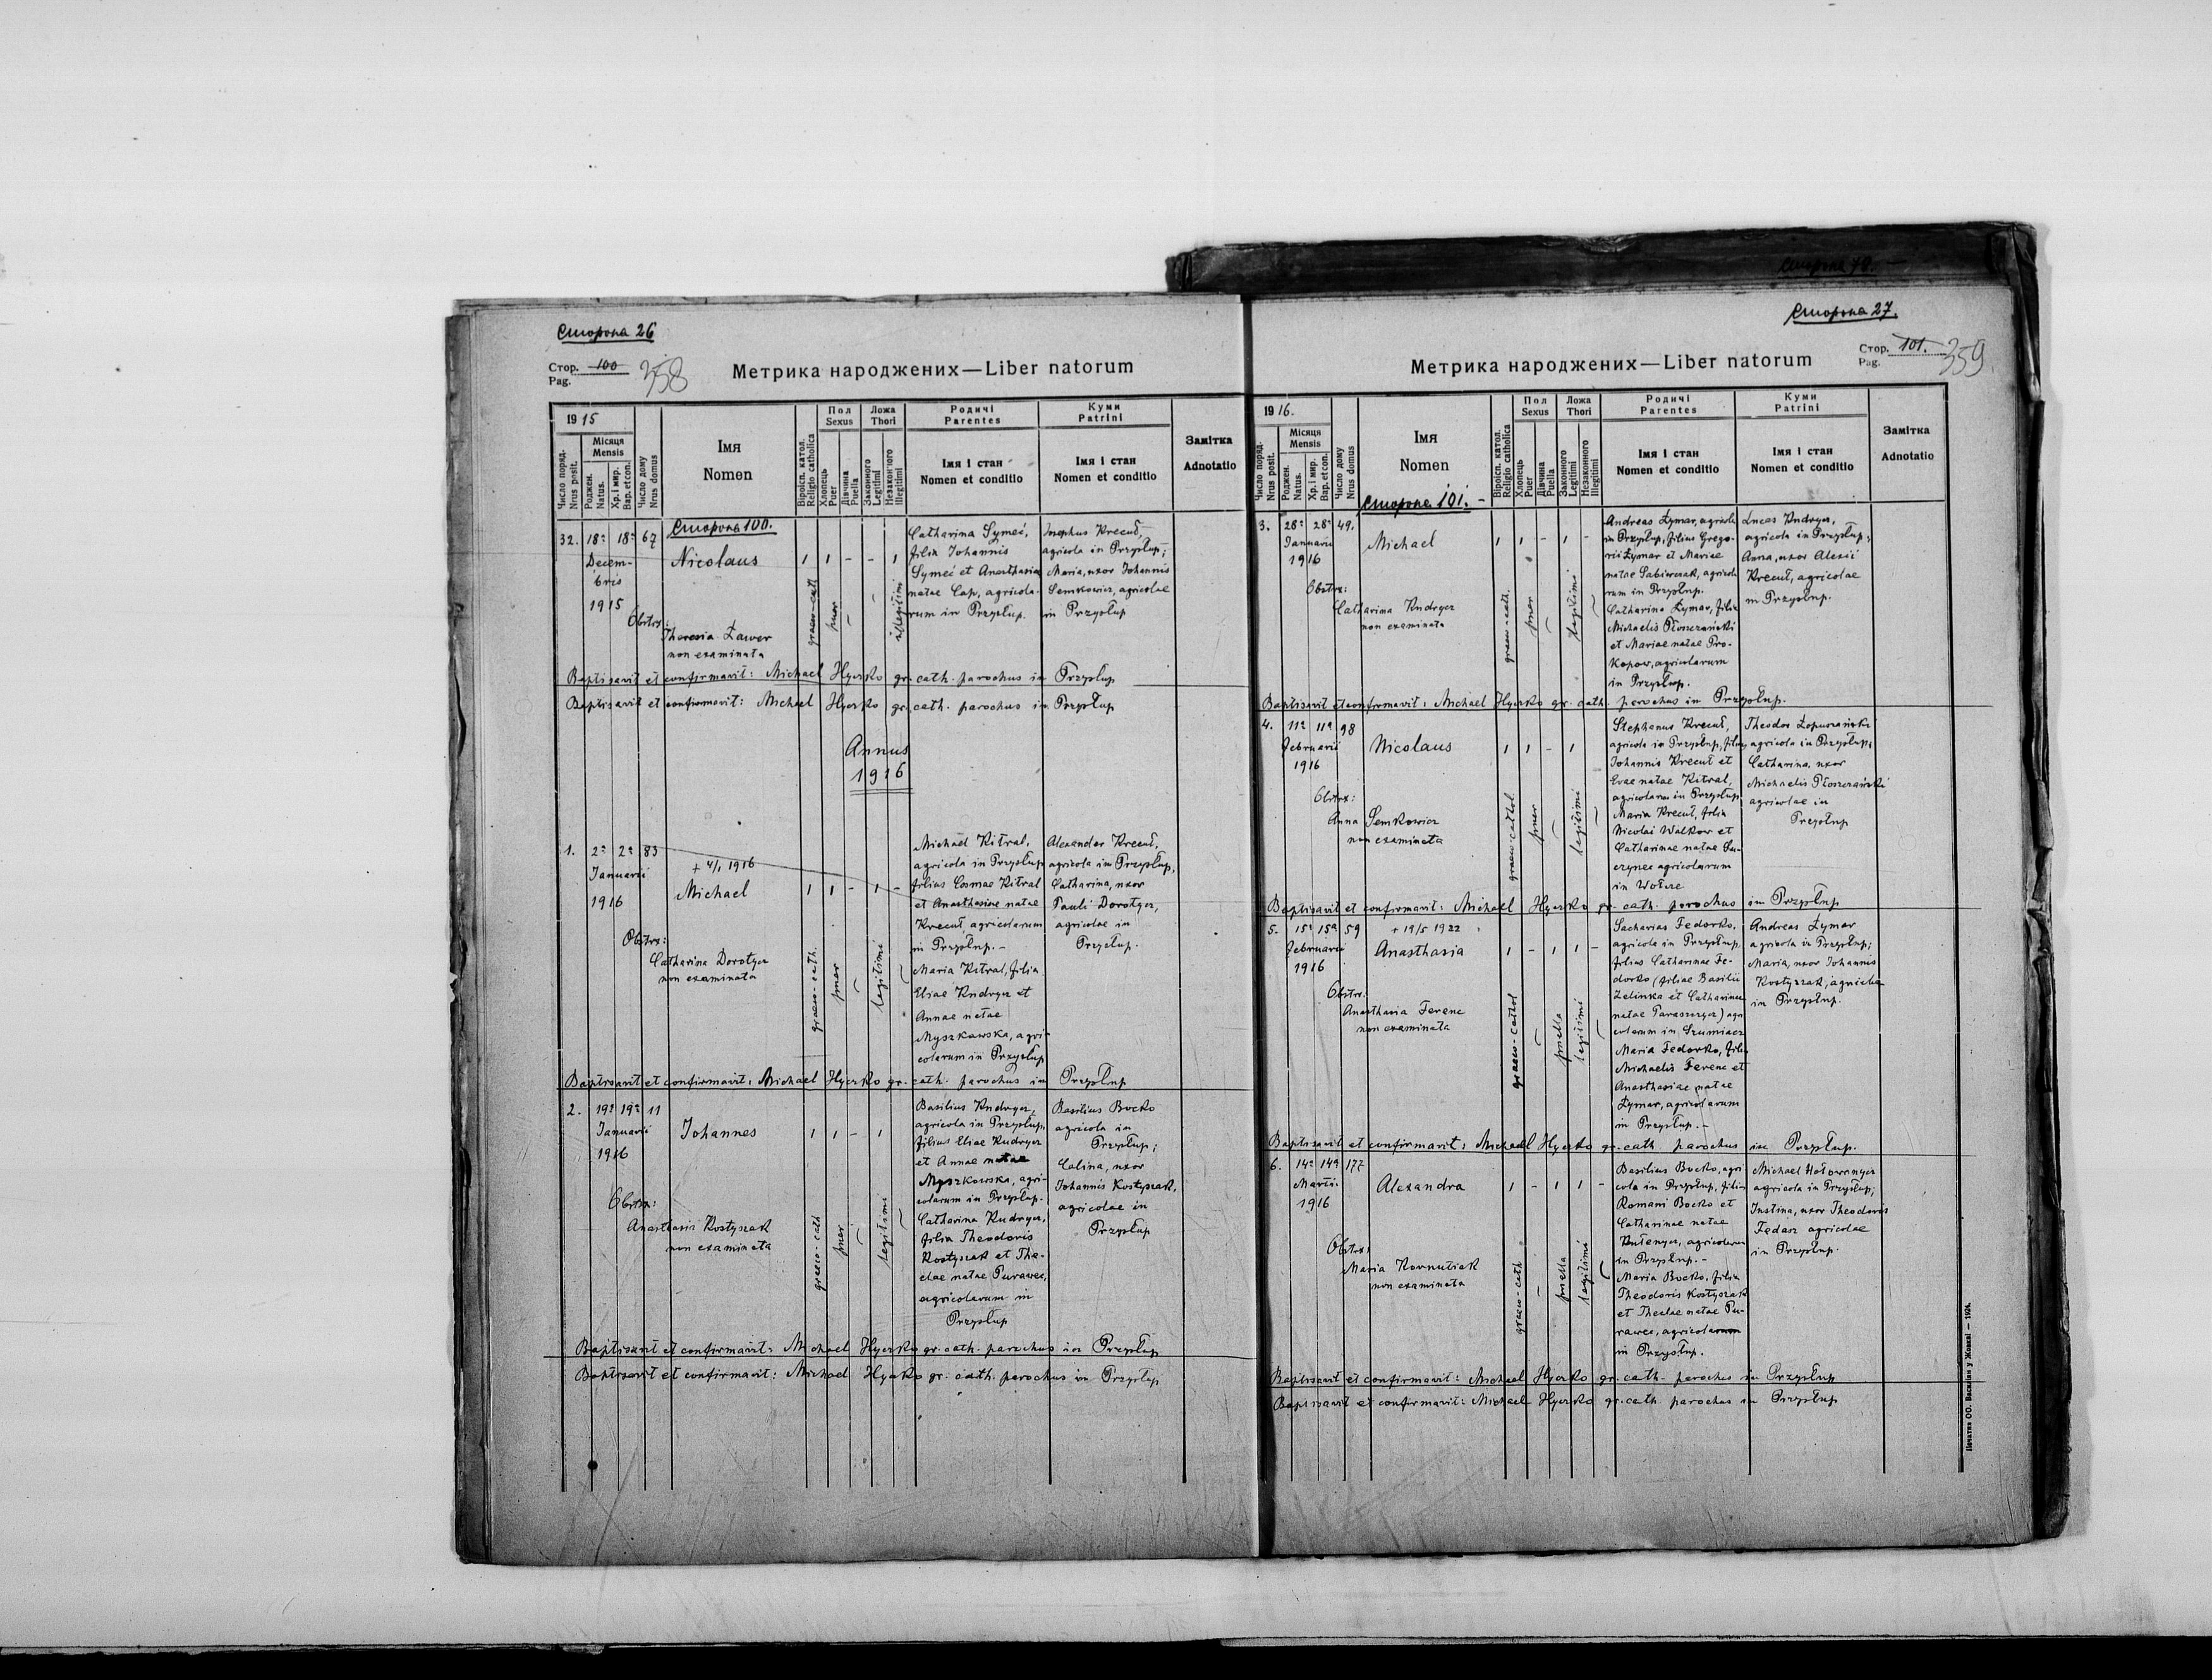 Сторона 26
Стор. 100 358
Pag.
Метрика народжених — Liber natorum
1915
Число поряд. Nrus posit.
Місяця Mensis
Роджен. Natus.
Хр. і мир. Bap. et con.
Число дому Nrus domus
Імя
Nomen
Віроісп. катол. Religio catholica
Пол Sexus
Хлопець Puer
Дівчина Puella
Ложа Thori
Законного Legitimi
Незаконного Illegitimi
Родичі
Parentes
Імя і стан
Nomen et conditio
Куми
Patrini
Імя і стан
Nomen et conditio
Замітка
Adnotatio
Сторона 100.
32. 18a 18a 67
Decem-
bris
1915
Nicolaus
1 1 - - 1
graeco-cath
puer
illegitimi
Obstrx:
Theresia Ławer
non examinata
Catharina Symeć,
filia Johannis
Symeć et Anasthasiae
natae Cap, agricola-
rum in Przysłup.
Josephus Krecuł,
agricola in Przysłup;
Maria, uxor Johannis
Semkowicz, agricolae
in Przysłup
Baptisavit et confirmavit: Michael Hyerko gr. cath. parochus in Przysłup
Baptisavit et confirmavit: Michael Hyerko gr. cath. parochus in Przysłup
Annus
1916
1. 2a 2a 83
Januarii
1916
+ 4/1 1916
Michael
1 1 - 1 -
graeco-cath.
puer
legitimi
Obstrx:
Catharina Dorotycz
non examinata
Michael Kitral,
agricola in Przysłup,
filius Cosmae Kitral
et Anasthasiae natae
Krecuł, agricolarum
in Przysłup. -
Maria Kitral, filia
Eliae Kudrycz et
Annae natae
Myszkowska, agri-
colarum in Przysłup
Alexander Krecuł,
agricola in Przysłup,
Catharina, uxor
Pauli Dorotycz,
agricolae in
Przysłup.
Baptisavit et confirmavit: Michael Hyerko gr. cath. parochus in Przysłup
2. 19a 19a 11
Januarii
1916
Johannes
1 1 - 1
graeco-cath
puer
legitimi
Obstrx:
Anasthasia Kostyszak
non examinata
Basilius Kudrycz,
agricola in Przysłup,
filius Eliae Kudrycz
et Annae natae
Myszkowska, agri-
colarum in Przysłup.
Catharina Kudrycz,
filia Theodoris
Kostyszak et The-
clae natae Purawec,
agricolarum in
Przysłup
Basilius Bocko
agricola in
Przysłup;
Calina, uxor
Johannis Kostyszak,
agricolae in
Przysłup
Baptisavit et confirmavit: Michael Hyerko gr. cath. parochus in Przysłup
Baptisavit et confirmavit: Michael Hyerko gr. cath. parochus in Przysłup
Сторона 70.
Сторона 27.
Стор. 101. 359
Pag.
Метрика народжених — Liber natorum
1916.
Число поряд. Nrus posit.
Місяця Mensis
Роджен. Natus.
Хр. і мир. Bap. et con.
Число дому Nrus domus
Імя
Nomen
Віроісп. катол. Religio catholica
Пол Sexus
Хлопець Puer
Дівчина Puella
Ложа Thori
Законного Legitimi
Незаконного Illegitimi
Родичі
Parentes
Імя і стан
Nomen et conditio
Куми
Patrini
Імя і стан
Nomen et conditio
Замітка
Adnotatio
Сторона 101. -
3. 28a 28a 49.
Januarii
1916
Michael
1 1 - 1 -
graeco-cath.
puer
legitimi
Obstrx:
Catharina Kudrycz
non examinata
Andreas Łymar, agricola
in Przysłup, filius Grego-
rii Łymar et Mariae
natae Sabiwczak, agricola-
rum in Przysłup.
Catharina Łymar, filia
Michaelis Płoszczański
et Mariae natae Pro-
kopow, agricolarum
in Przysłup.
Lucas Kudrycz,
agricola in Przysłup;
Anna, uxor Alexii
Krecuł, agricolae
in Przysłup.
Baptisavit et confirmavit: Michael Hyerko gr. cath. parochus in Przysłup.
4. 11a 11a 98
Februarii
1916
Nicolaus
1 1 - 1
graeco-cathol.
puer
legitimi
Obstrx:
Anna Semkowicz
non examinata
Stephanus Krecuł,
agricola in Przysłup, filius
Johannis Krecuł et
Evae natae Kitral,
agricolarum in Przysłup
Maria Krecuł, filia
Nicolai Walkow et
Catharinae natae
agricolarum
in Wołcze
Theodor Łopuszański
agricola in Przysłup;
Catharina, uxor
Michaelis Płoszczański
agricolae in
Przysłup
Baptisavit et confirmavit: Michael Hyerko gr. cath. parochus in Przysłup
5. 15a 15a 59
Februarii
1916
+ 19/5 1922
Anasthasia
1 - 1 1 -
graeco-cathol
puella
legitimi
Obstrx:
Anasthasia Ferenc
non examinata
Sacharias Fedorko,
agricola in Przysłup,
filius Catharinae Fe-
dorko (filiae Basilii
Zelinka et Catharinae
natae Paraszczycz) agri-
colarum in Szumiacz
Maria Fedorko, filia
Michaelis Ferenc et
Anasthasiae natae
Łymar, agricolarum
in Przysłup. -
Andreas Łymar
agricola in Przysłup;
Maria, uxor Johannis
Kostyszak, agricolae
in Przysłup.
Baptisavit et confirmavit: Michael Hyerko gr. cath. parochus in Przysłup.
6. 14a 14a 177
Martii
1916
Alexandra
1 - 1 1 -
graeco-cath
puella
legitimi
Obstrx:
Maria Kornutiak
non examinata
Basilius Bocko, agri-
cola in Przysłup, filius
Romani Bocko et
Catharinae natae
agricolarum
in Przysłup. -
Maria Bocko, filia
Theodoris Kostyszak
et Theclae natae Pu-
rawec, agricolarum
in Przysłup.
Michael Hołowczycz
agricola in Przysłup;
Justina, uxor Theodoris
Fedasz agricolae
in Przysłup.
Baptisavit et confirmavit: Michael Hyerko gr. cath. parochus in Przysłup
Baptisavit et confirmavit: Michael Hyerko gr. cath. parochus in Przysłup
Печатня ОО. Василіян у Жовкві — 1924.